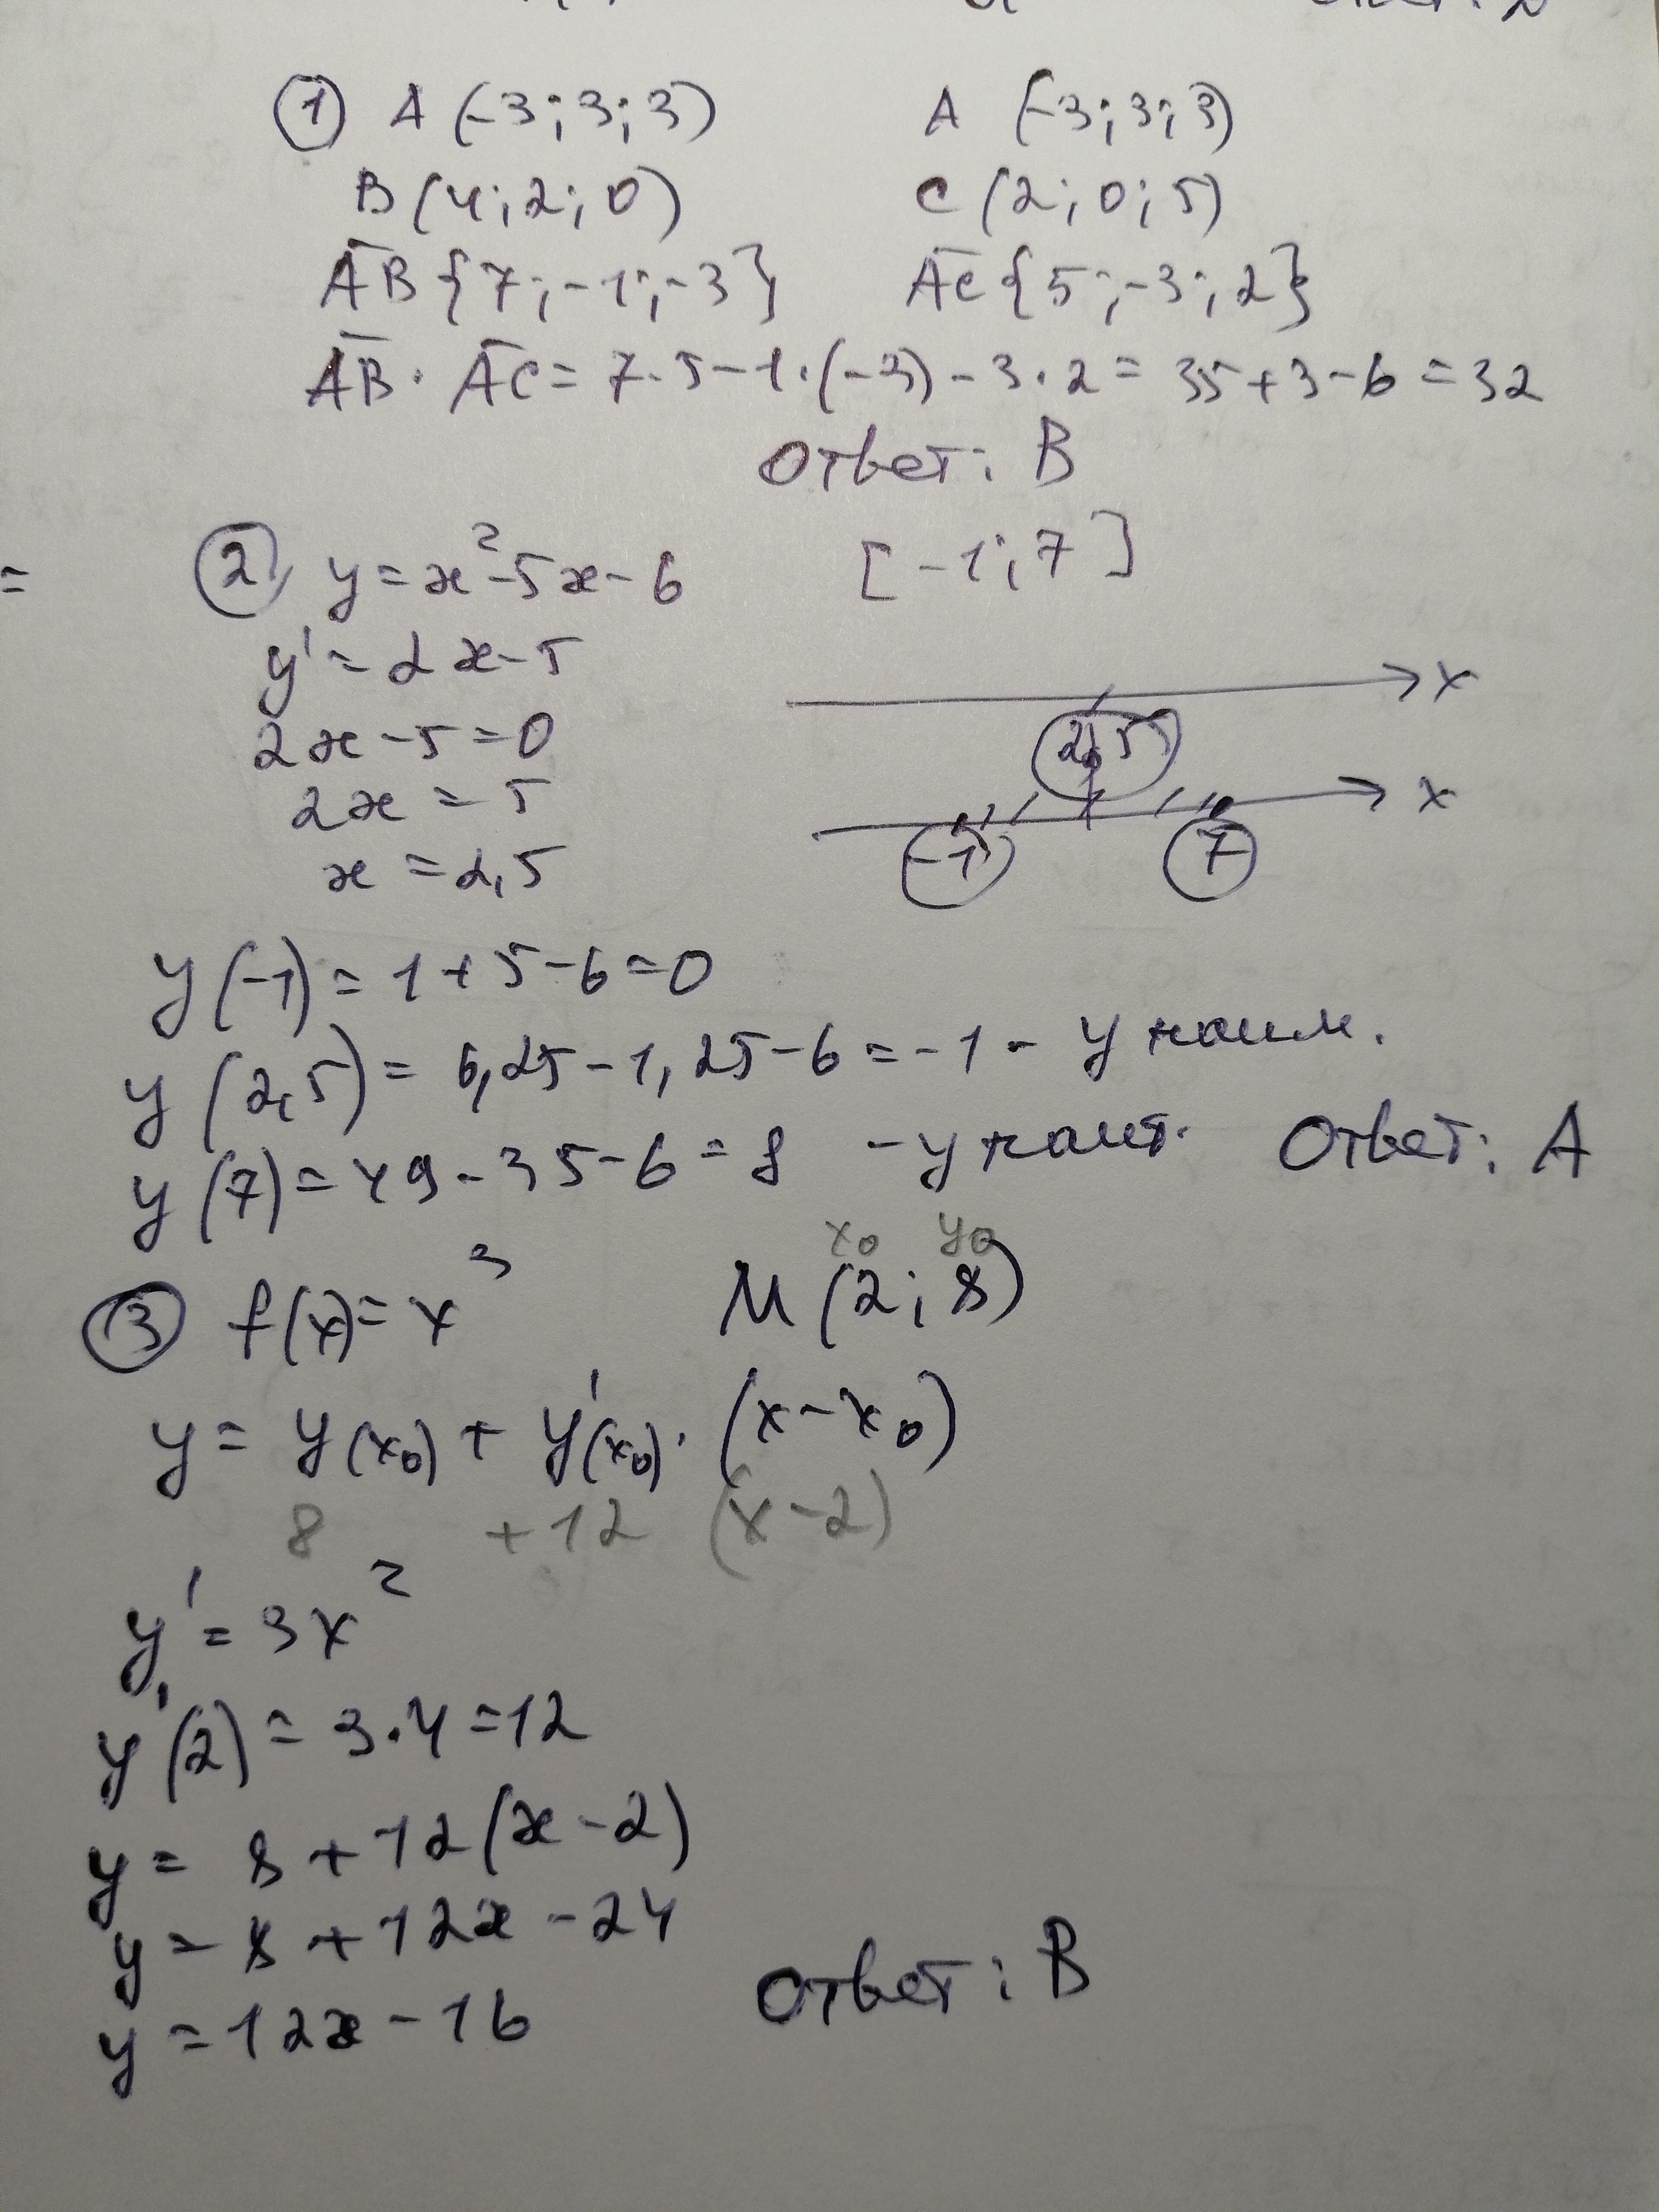 ① A (-3; 3; 3) A (-3; 3; 3)
B (4; 2; 0) C (2; 0; 5)
AB {7; -1; -3} AC {5; -3; 2}
AB · AC = 7·5-1·(-3)-3·2 = 35+3-6=32
Ответ: В
=
② y = x²-5x-6 [-1; 7]
y' = 2x-5
2x-5=0
2x = 5
x = 2,5
x
2,5
x
-1 7
y(-1) = 1+5-6=0
y(2,5) = 6,25-1,25-6=-1 - y наим.
y(7) = 49-35-6=8 - y наиб. Ответ: А
x₀ y₀
③ f(x)=x³ M (2; 8)
y = y(x₀) + y'(x₀)·(x-x₀)
8 +12 (x-2)
y' = 3x²
y'(2) = 3·4=12
y = 8+12(x-2)
y = 8+12x-24
y = 12x-16
Ответ: В